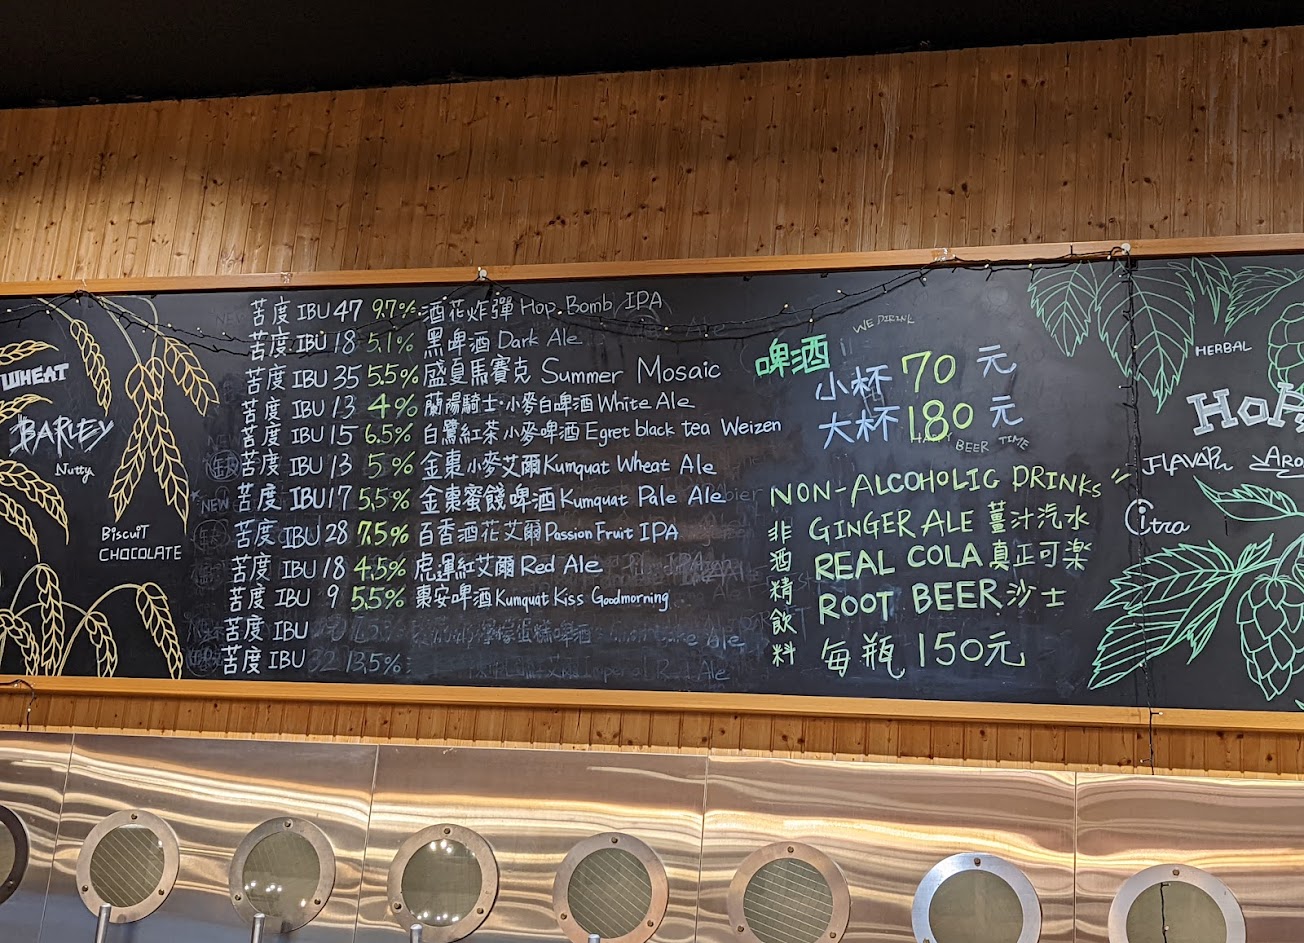 WHEAT
BARLEY
Nutty
BISCUIT
CHOCOLATE
苦度 IBU 47 9.7% 酒花炸彈 Hop Bomb IPA
苦度 IBU 18 5.1% 黑啤酒 Dark Ale
苦度 IBU 35 5.5% 盛夏馬賽克 Summer Mosaic
苦度 IBU 13 4% 蘭陽騎士·小麥白啤酒 White Ale
苦度 IBU 15 6.5% 白鷺紅茶小麥啤酒 Egret black tea Weizen
苦度 IBU 13 5% 金棗小麥艾爾 Kumquat Wheat Ale
NEW 苦度 IBU 17 5.5% 金棗蜜餞啤酒 Kumquat Pale Ale
苦度 IBU 28 7.5% 百香酒花艾爾 Passion Fruit IPA
苦度 IBU 18 4.5% 虎運紅艾爾 Red Ale
苦度 IBU 9 5.5% 棗安啤酒 Kumquat Kiss Goodmorning
苦度 IBU
苦度 IBU 32 13.5%
啤酒
WE DRINK
小杯 70 元
大杯 180 元
BEER TIME
NON-ALCOHOLIC DRINKS
非酒精飲料
GINGER ALE 薑汁汽水
REAL COLA 真正可楽
ROOT BEER 沙士
每瓶 150元
HERBAL
HOP
FLAVOR
Citra